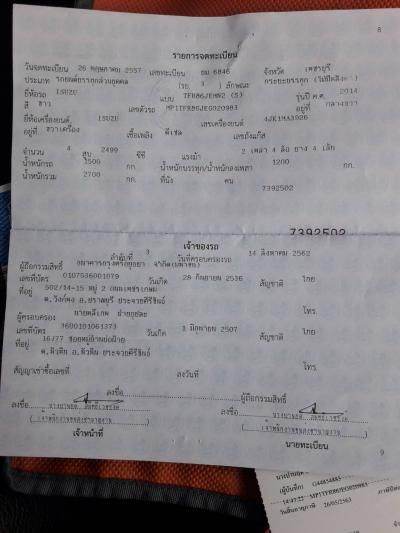 8
รายการจดทะเบียน
วันจดทะเบียน 26 พฤษภาคม 2557 เลขทะเบียน บม 6846 จังหวัด เพชรบุรี
ประเภท รถยนต์บรรทุกส่วนบุคคล (รย. 3) ลักษณะ กระบะบรรทุก
ยี่ห้อรถ ISUZU แบบ รุ่นปี ค.ศ. 2014
สี ขาว เลขตัวรถ MP1TFR86JEG020983 อยู่ที่
ยี่ห้อเครื่องยนต์ ISUZU เลขเครื่องยนต์ 4JK1MA3926
อยู่ที่ เชื้อเพลิง ดีเซล เลขถังแก๊ส
จำนวน 4 สูบ 2499 ซีซี แรงม้า 2 เพลา 4 ล้อ ยาง 4 เส้น
น้ำหนักรถ 1500 กก. น้ำหนักบรรทุก/น้ำหนักลงเพลา 1200 กก.
น้ำหนักรวม 2700 กก. ที่นั่ง คน
7392502
7392502
เจ้าของรถ
ลำดับที่ 3 วันที่ครอบครองรถ 14 สิงหาคม 2562
ผู้ถือกรรมสิทธิ์ ธนาคารกรุงศรีอยุธยา จำกัด(มหาชน)
เลขที่บัตร 0107536001079 วันเกิด 28 กันยายน 2536 สัญชาติ ไทย
ที่อยู่ 502/14-15 หมู่ 2 ถนนเพชรเกษม
ต.วังก์พง อ.ปราณบุรี ประจวบคีรีขันธ์ โทร.
ผู้ครอบครอง
เลขที่บัตร 3600101061373 วันเกิด 1 มิถุนายน 2507 สัญชาติ ไทย
ที่อยู่ 16/77
ต.หัวหิน อ.หัวหิน ประจวบคีรีขันธ์ โทร.
สัญญาเช่าซื้อเลขที่ ลงวันที่
ลงชื่อ ผู้ถือกรรมสิทธิ์
ลงชื่อ ลงชื่อ
เจ้าหน้าที่ นายทะเบียน
9
ผู้บันทึก: G44854885
14:47:22 MP1TFR86JEG020983
วันสิ้นอายุภาษี 26/05/2563